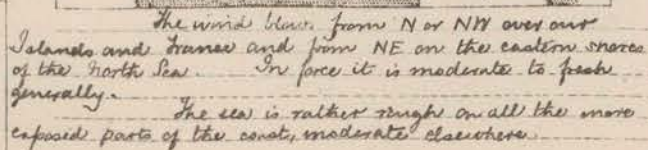 The wind blows from N or NW over our
Islands and France and from NE on the eastern shores
of the North Sea. In force it is moderate to fresh
generally.
The sea is rather rough on all the more
exposed parts of the coast, moderate elsewhere.